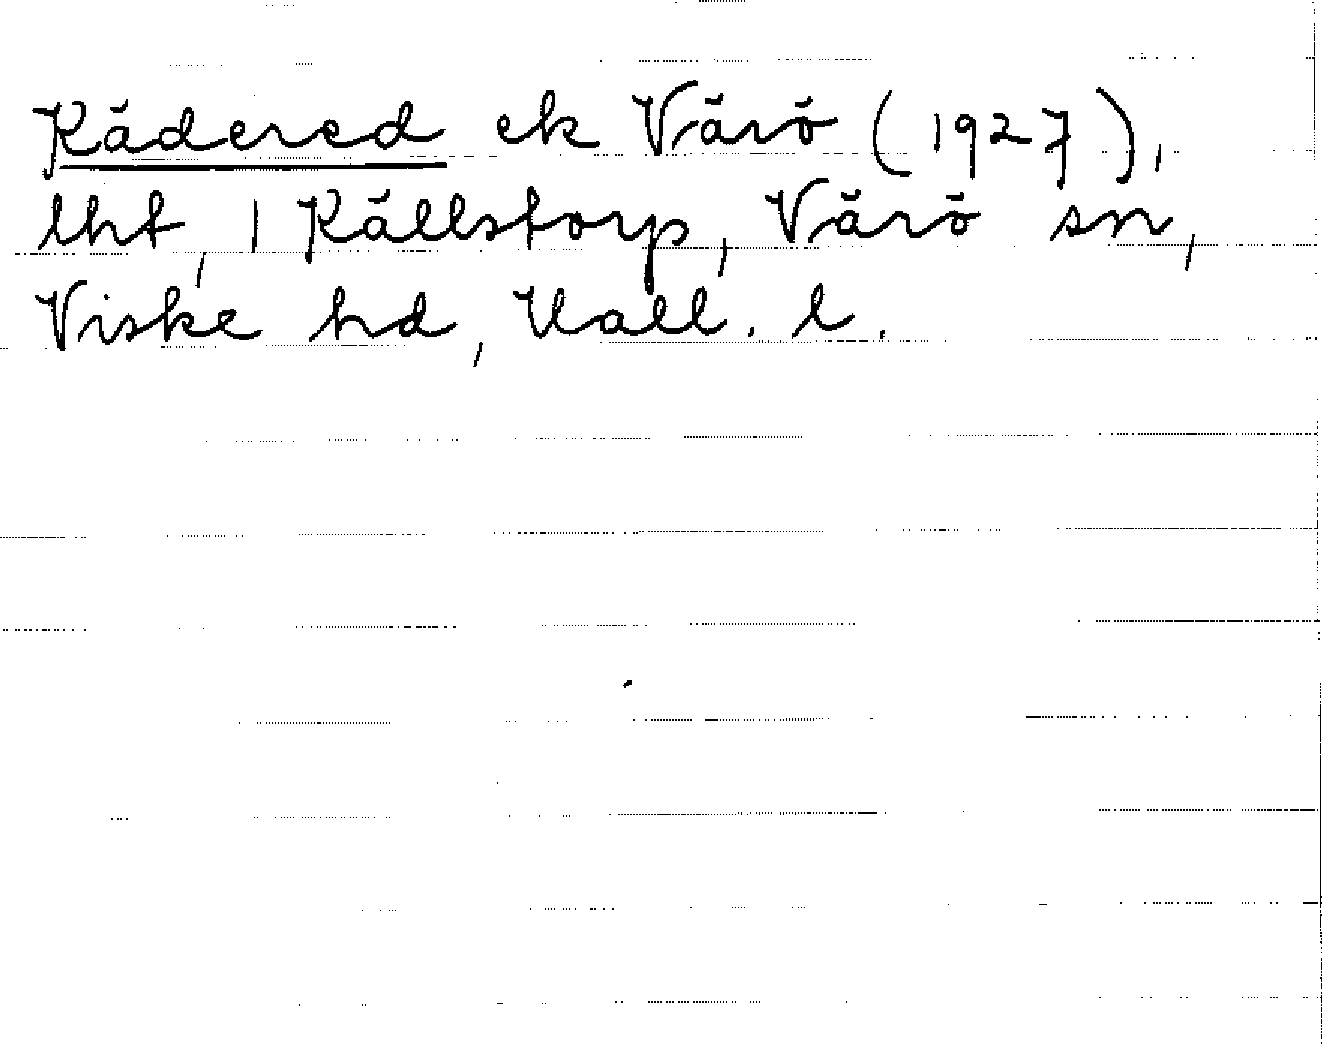 Kädered ek Värö (1927),
lht, 1 Källstorp, Värö sn,
Viske hd, Hall. l.